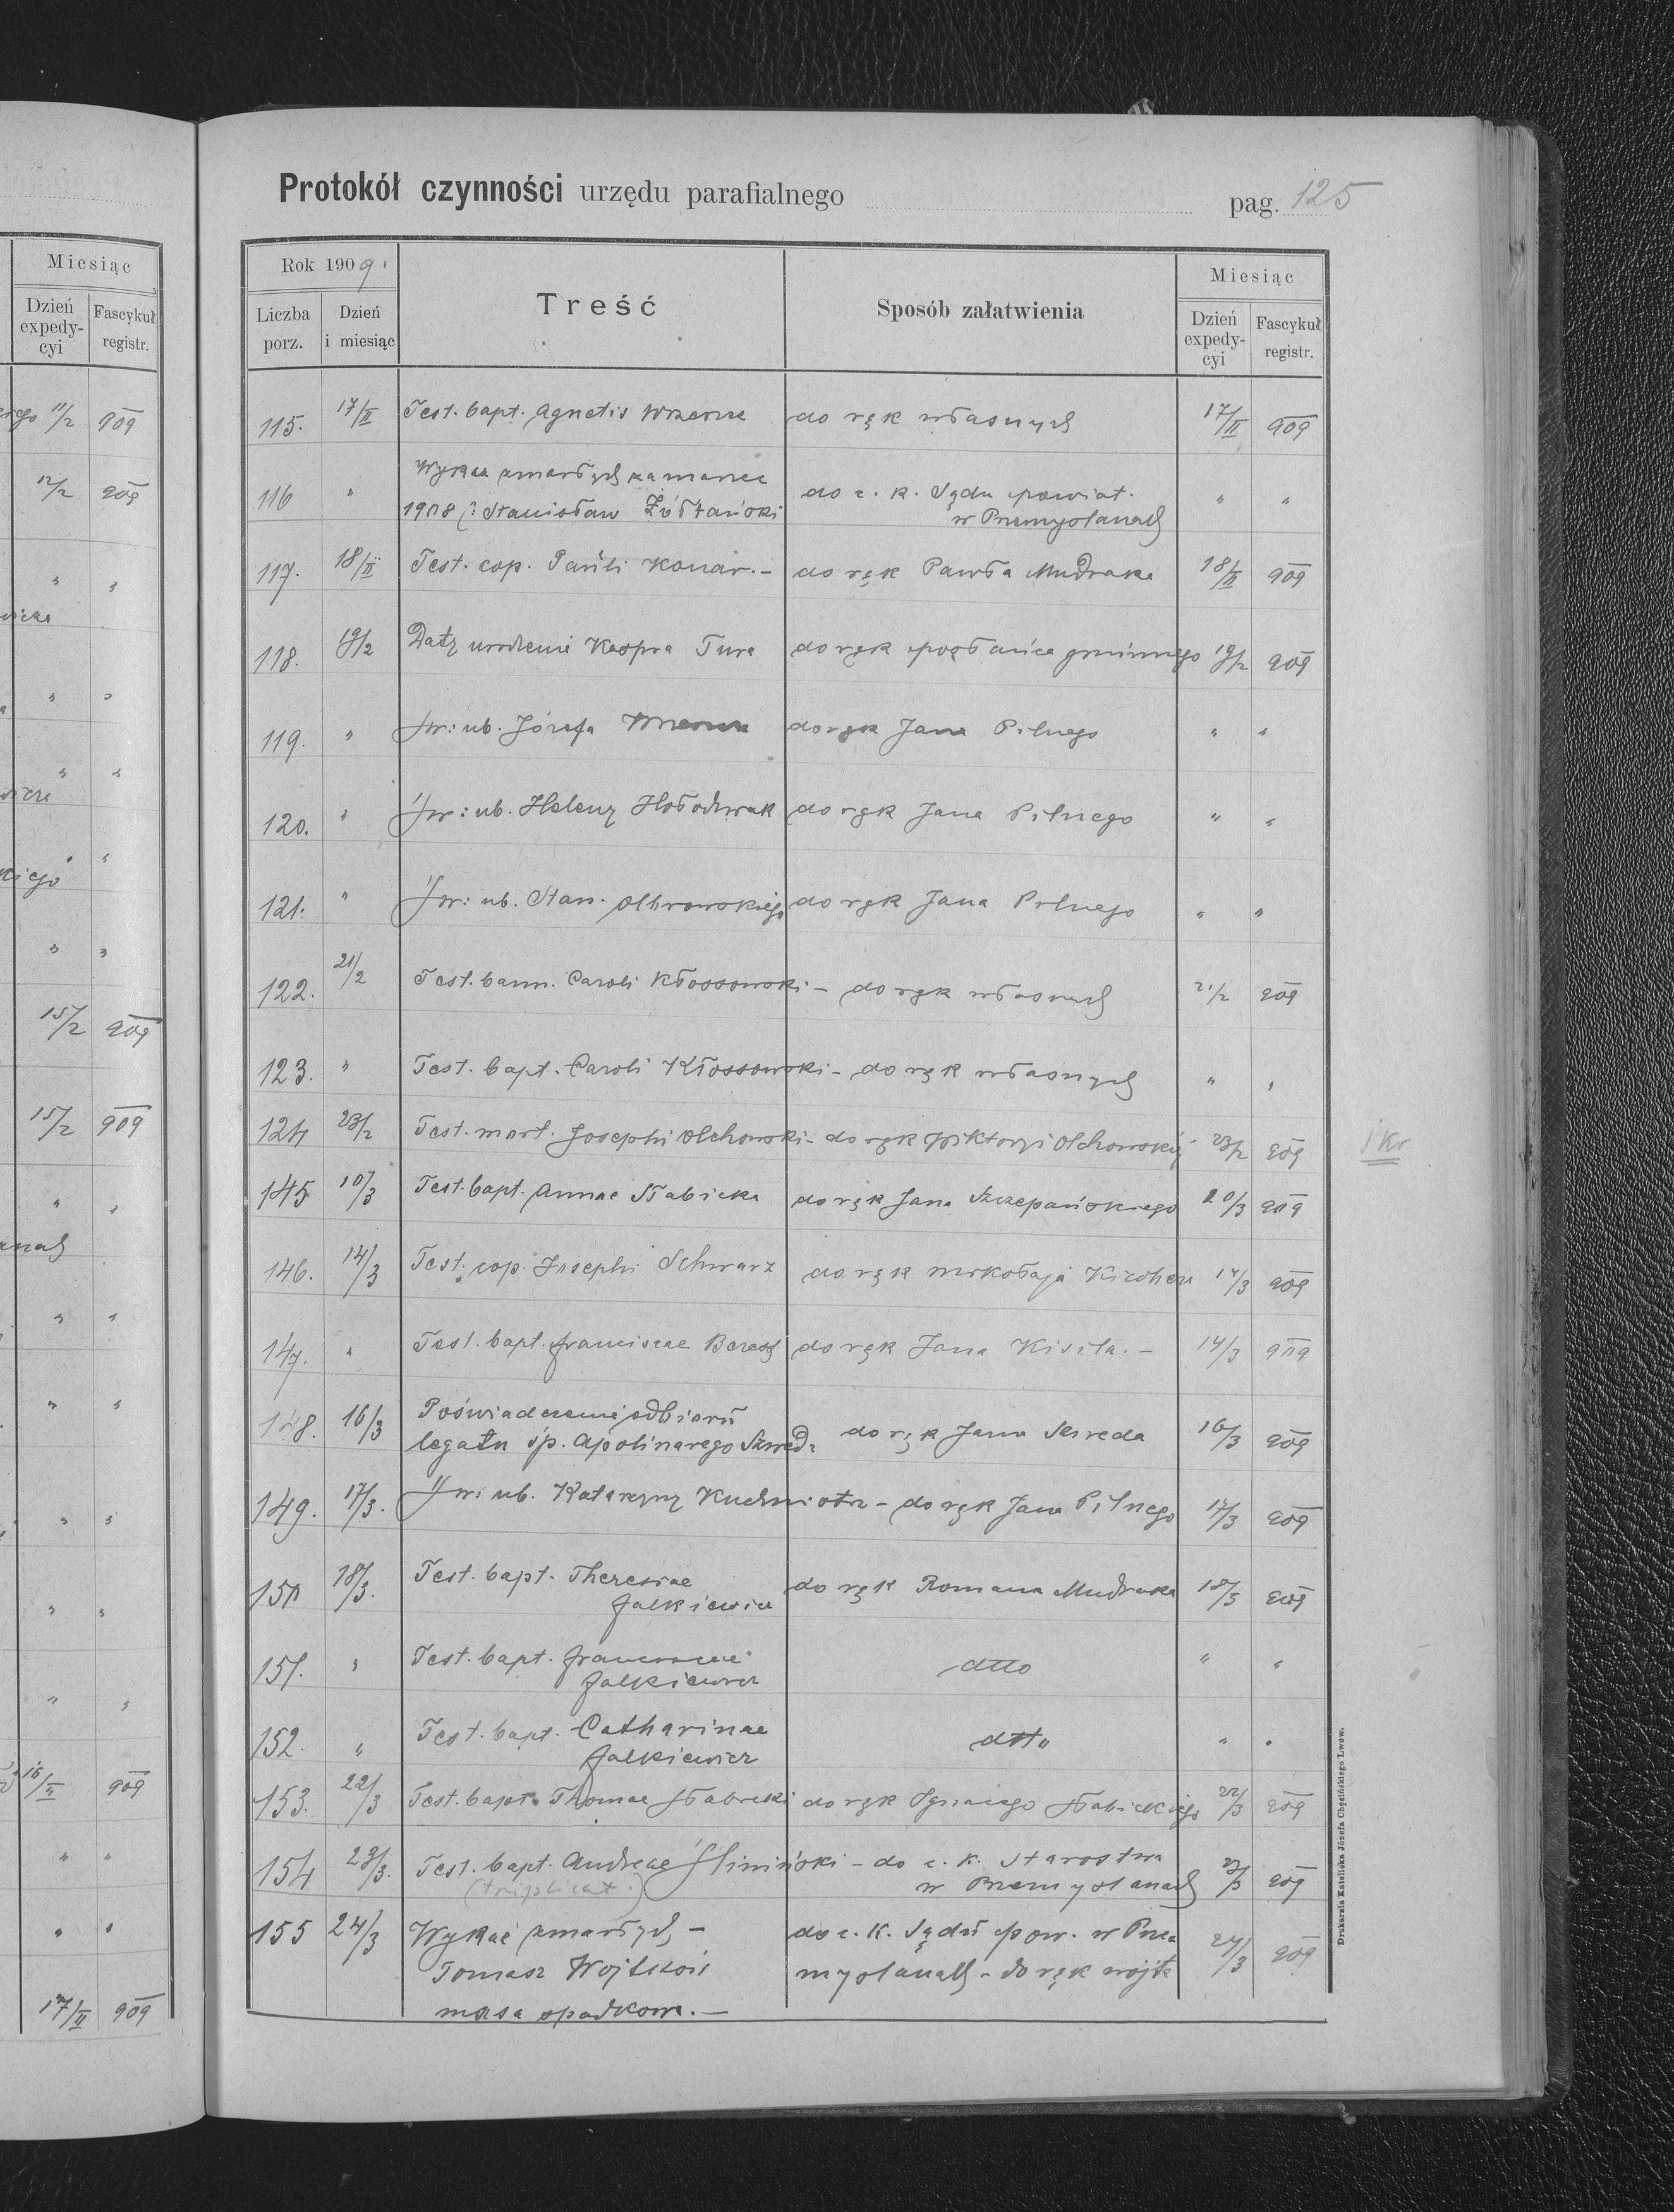 Miesiąc
Dzień expedycyi
Fascykuł registr.
11/2 909
12/2 909
" "
" "
" "
15/2 909
15/2 909
" "
16/II 909
" "
17/II 909
Protokół czynności urzędu parafialnego
pag. 125
Rok 1909.
Liczba porz.
Dzień i miesiąc
Treść
Sposób załatwienia
Miesiąc
Dzień expedycyi
Fascykuł registr.
115. 17/II Test. bapt. Agnetis do ręk własnych 17/II 909
116 " Wykaz zmarłych za marzec
1908 Stanisław Żółtański do c. k. Sądu powiat. " "
w Przemyślanach
117. 18/II Test. cop. Pauli Konar.- do ręk Pawła Mudraka 18/II 909
118. 19/2 Datę urodzenia Kaspra Tura do ręk posłańca gminnego 19/2 909
119. " Św: ub. Józefa do ręk Jana Pilnego " "
120. " Św: ub. Heleny do ręk Jana Pilnego " "
121. " Św: ub. Stan. do ręk Jana Pilnego " "
122. 21/2 Test. bann. Caroli Kłossowski - do ręk własnych 21/2 909
123. " Test. bapt. Caroli Kłossowski - do ręk własnych " "
124 23/2 Test. mort. Josephi Olchowski - do ręk Wiktoryi Olchowskiej 23/2 909
1kr
145 10/3 Test. bapt. Annae Słabicka do ręk Jana Szczepańskiego 10/3 909
146. 14/3 Test. cop. Josephi Schwarz do ręk Mikołaja 14/3 909
147. " Test. bapt. Franciscae do ręk Jana Kisiła.- 14/3 909
148. 16/3 Poświadczenie odbioru
legatu śp. Apolinarego Szweda do ręk Jana 16/3 909
149. 17/3. Św: ub. Katarzyny - do ręk Jana Pilnego 17/3 909
150 18/3. Test. bapt. Theresiae
Falkiewicz do ręk Romana Mudraka 18/3 909
151. " Test. bapt. Franciscae
Falkiewicz dtto " "
152. " Test. bapt. Catharinae
Falkiewicz dtto " "
153. 22/3 Test. bapt. Thomae Słabicki do ręk Ignacego Słabickiego 22/3 909
154 23/3. Test. bapt. Andreae - do c. k. Starostwa
(triplicat.) w Przemyślanach 23/3 909
155 24/3 Wykaz zmarłych, - do c. k. Sądu pow. w Prze
Tomasz Wojtków myślanach - do ręk wójta 24/3 909
masa spadkowa.-
Drukarnia Katolicka Józefa Chęcińskiego Lwów.